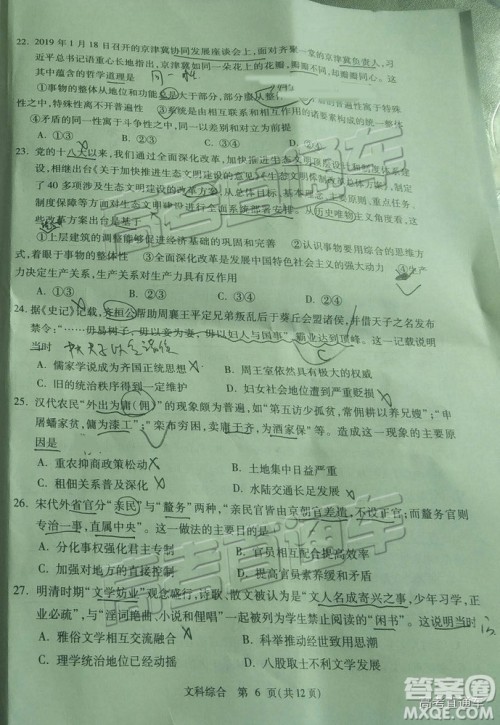 22. 2019 年 1 月 18 日召开的京津冀协同发展座谈会上，面对齐聚一堂的京津冀负责人，习
近平总书记语重心长地指出，京津冀如同一朵花上的花瓣，瓣瓣不同，却瓣瓣同心。
其中蕴含的哲学道理是
同一性
①事物的整体和功能总是大于部分，部分
性之中，特殊性离不开普遍性 ③系统是由相互联系和相互作用的诸要素构成的统一体
④矛盾的同一性寓于斗争性之中，同一以差别和对立为前提
A. ①③ B. ①④ C. ②③ D. ②④
23. 党的十八大以来，我们通过全面深化改革，加快推进生态文明顶层设计和制度体系建设，
相继出台《关于加快推进生态文明建设的意见》《生态文明体制改革总体方案》，制定
了 40 多项涉及生态文明建设的改革方案，从总体目标、基本理念、主要原则、重点任务、
制度保障等方面对生态文明建设进行全面系统部署安排。从历史唯物主义角度看，这
些改革方案出台是基于
①上层建筑的调整能够促进经济基础的巩固和完善 ②认识事物要用综合的思维方
式，着眼于事物的整体性 ③全面深化改革是发展中国特色社会主义的强大动力 ④生产
力决定生产关系，生产关系对生产力具有反作用
A. ①③ B. ①④ C. ②③ D. ②④
24. 据《史记》记载，齐桓公帮助周襄王平定兄弟叛乱后于葵丘会盟诸侯，并借天子之名发布
禁令：“……毋易树子，毋以妾为妻，毋以妇人与国事”，霸业达到顶峰。这一记载说明
当时
C
A. 儒家学说成为齐国正统思想 B. 周王室依然具有最高权威
C. 旧的统治秩序得到一定维护 D. 妇女社会地位遭到严重贬低
25. 汉代农民“外出为庸（佣）”的现象颇为普遍，如“第五访少孤贫，常佣耕以养兄嫂”；“申
屠蟠家贫，傭为漆工”；“栾布穷困，卖庸于齐，为酒家保”等。造成这一现象的主要原
因是
A. 重农抑商政策松动 B. 土地集中日益严重
C. 自然经济遭到破坏 D. 水陆交通长足发展
26. 宋代外省官分“亲民”与“釐务”两种，“亲民官皆由京朝官差遣，不认本官；而釐务官则
专治一事，直属中央”。这一做法
A. 分化事权强化君主专制 B. 官员相互配合提高效率
C. 加强对地方的直接控制 D. 提高官员素养缓和矛盾
27. 明清时期“文学妨业”观念盛行，诗歌、散文被认为是“文人名成寄兴之事，少年习学，正
业必疏”，与“淫词艳曲、小说和俚唱”一起成为影响读书的“闲书”。这表明当时
A. 雅俗文学相互交流融合 B. 科举推动经世致用思潮
C. 理学统治地位日益强化 D. 功利思想影响文学发展
文科综合 第 6 页（共 12 页）
高考直通车
高考直通车
高考直通车
答案圈
MXQE.COM